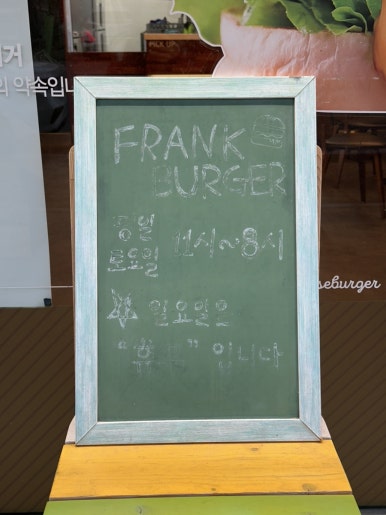 PICK UP
거
의 약속입니
FRANK
BURGER
평일
토요일 11시~8시
일요일은
"휴무" 입니다
seburger